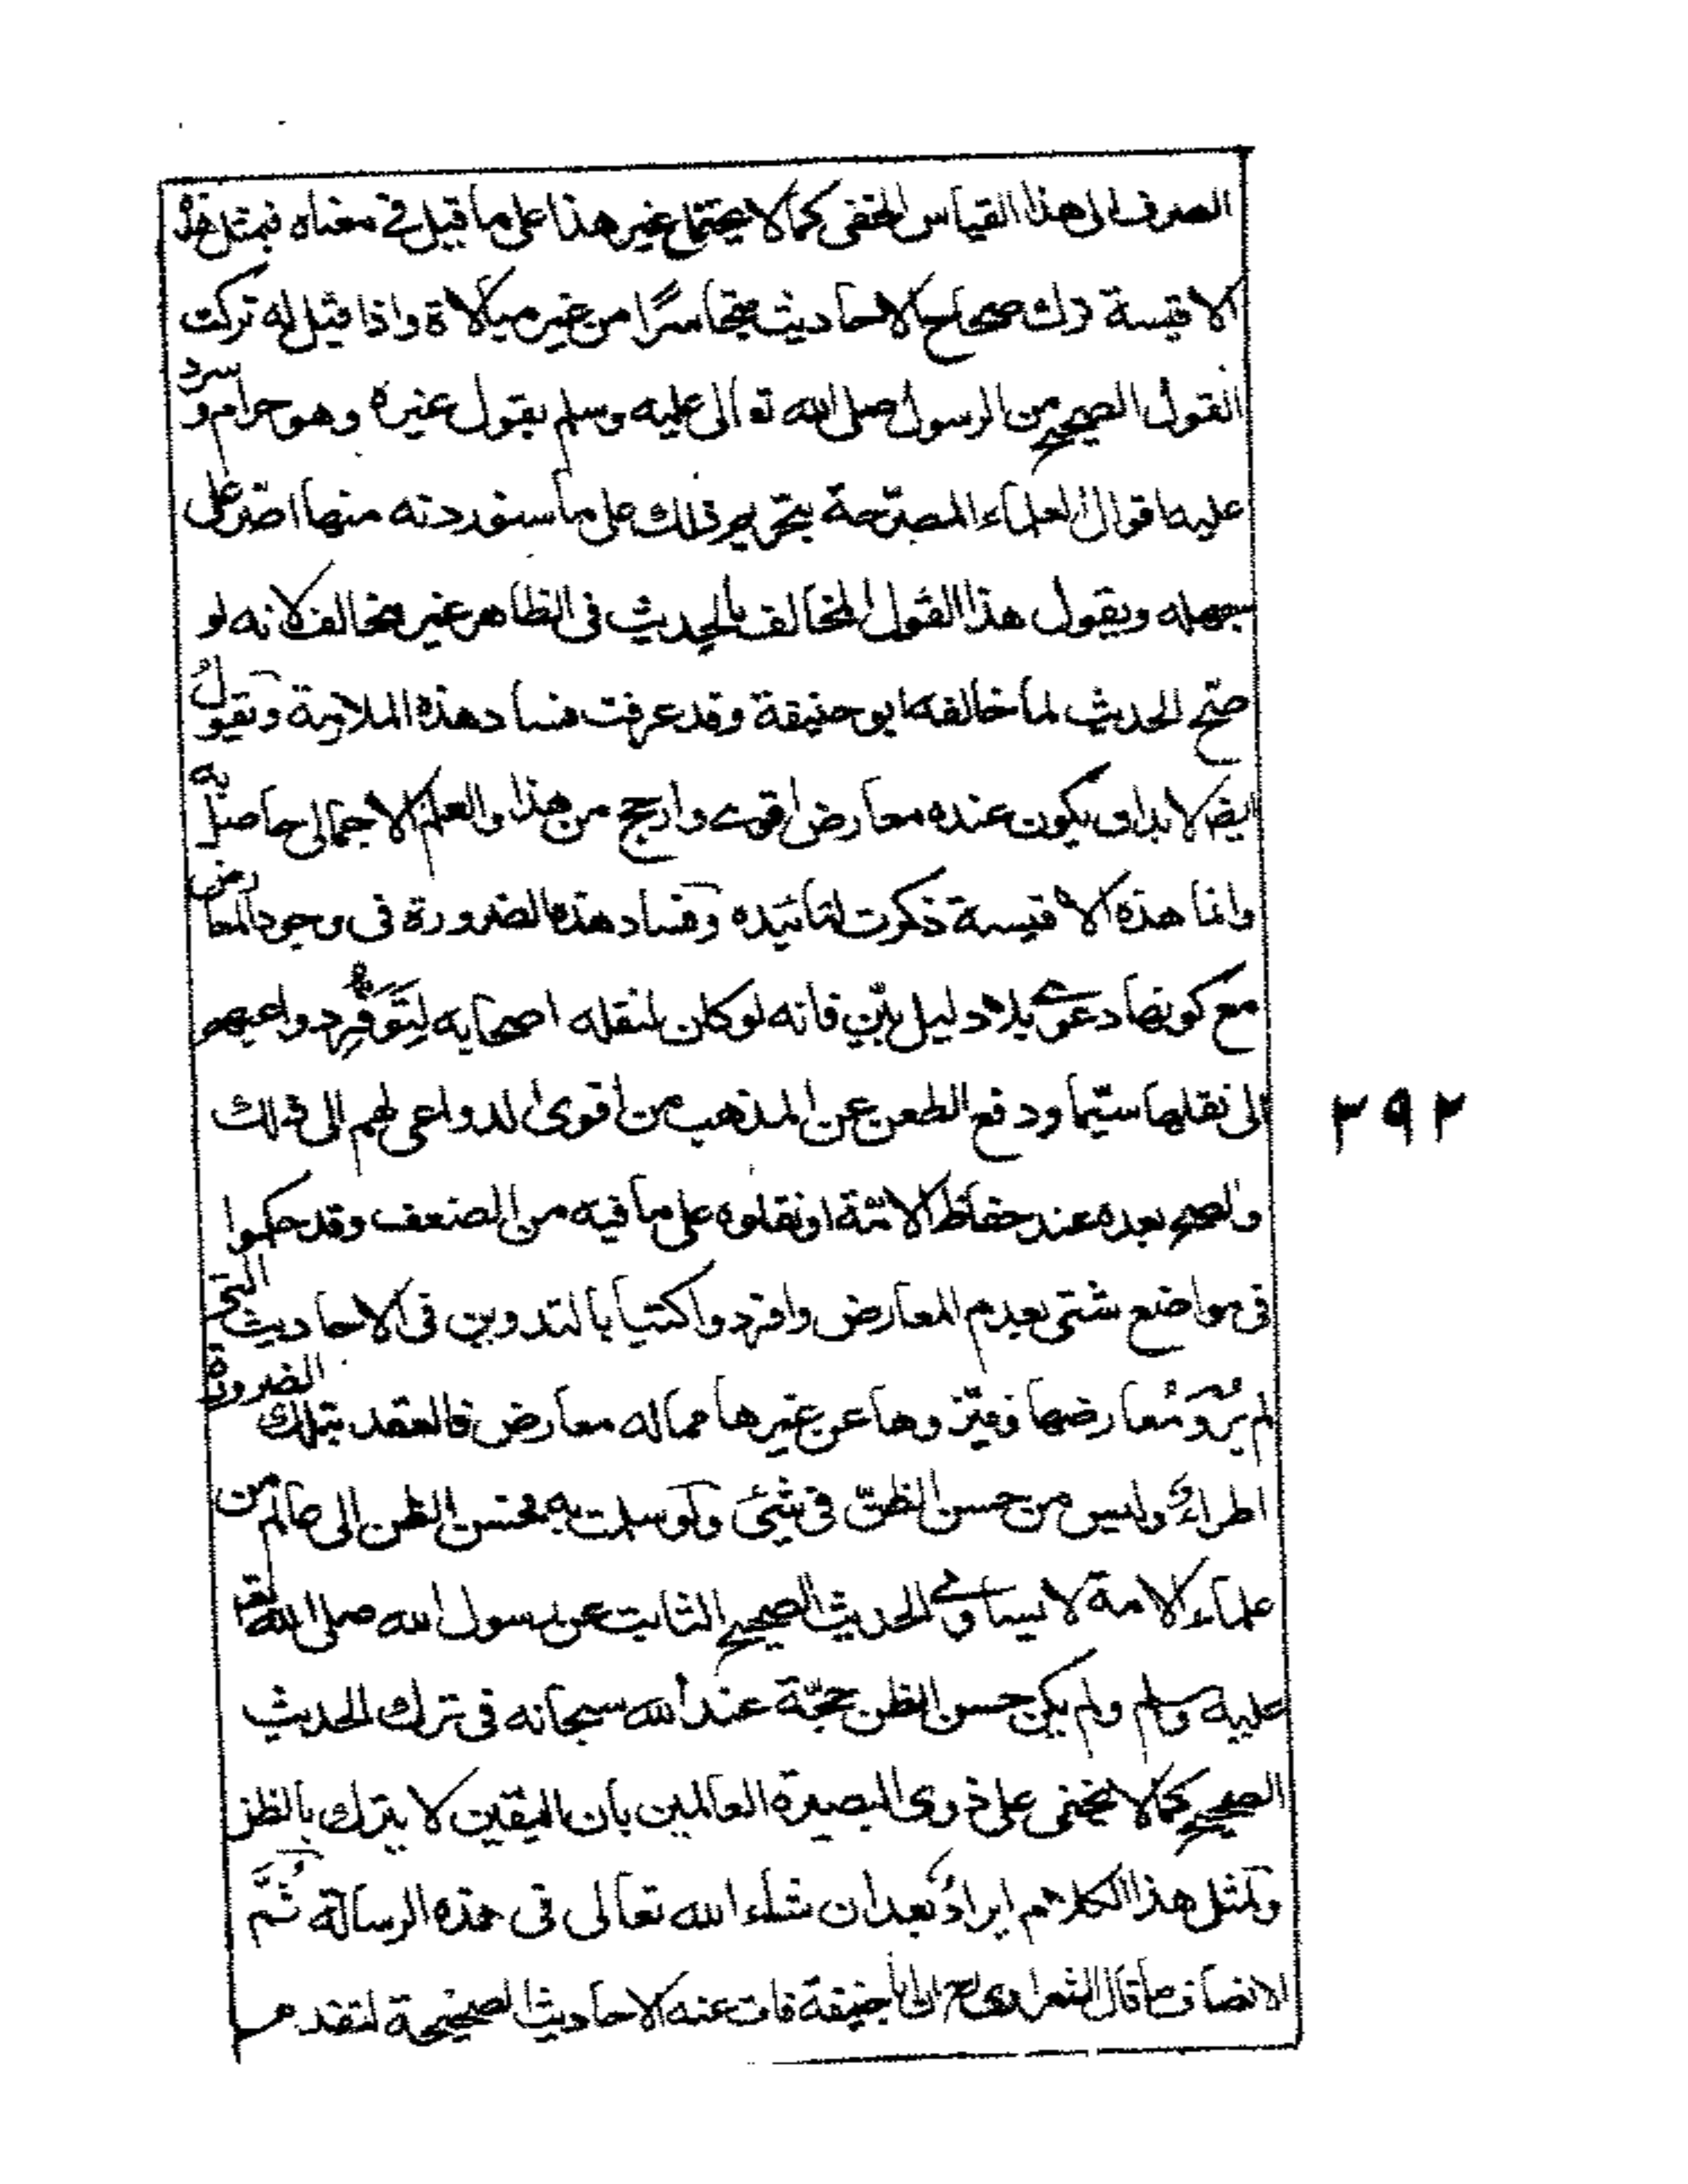 الصرف الى هذا القياس الخفى كما لا يحتمل غير هذا على ما قيل فى معناه فبمثل هذه
الاقيسة ترك صحاح الاحاديث متجاسرًا من غير مبالاة واذا قيل له تركت
القول الصحيح من الرسول صلى الله تعالى عليه وسلم بقول غيره وهو حرام وسرد
عليه اقوال العلماء المصرّحة بتحريم ذلك على ما ستوردته منها اصر على
جهله ويقول هذا القول المخالف بالحديث فى الظاهر غير مخالف لانه لو
صحّ الحديث لما خالفه ابو حنيفة وقد عرفت فساد هذه الملازمة ويقول
ايضا لا بد ان يكون عنده معارض اقوى وارجح من هذا والعلم الاجمالى حاصل به
وانما هذه الاقيسة ذكرت لتائيده وفساد هذه الضرورة فى وجود المعارض
مع كونها دعوى بلا دليل بيّن فانه لو كان لنقله اصحابه لِتَوَفُّرِ دواعيهم
الى نقلها سيّما ودفع الطعن عن المذهب من اقوى الدواعى لهم الى ذلك
والصحيح بعده عند حفاظ الائمة او نقلوه على ما فيه من الضعف وقد حكموا
فى مواضع شتى بعدم المعارض وافردوا كتبا بالتدوين فى الاحاديث التى
لم يُرَو مُعارضها وميّزوها عن غيرها مما له معارض فالعقد بتلك الضرورة
اطراءٌ وليس من حسن الظنّ فى شئ ولو سلمت به فحسن الظن الى عالم من
علماء الامة لا يساوى الحديث الصحيح الثابت عن رسول الله صلى الله تعا
عليه وسلم ولم يكن حسن الظن حجّة عند الله سبحانه فى ترك الحديث
الصحيح كما لا يخفى على ذوى البصيرة العالمين بان اليقين لا يترك بالظن
ولمثل هذا الكلام ايرادٌ بعد ان شاء الله تعالى فى هذه الرسالة ثُمَّ
الانصاف ما قال الشعراوى رح ان ابا حنيفة فات عنه الاحاديث الصحيحة لتقدمه
٣٩٢